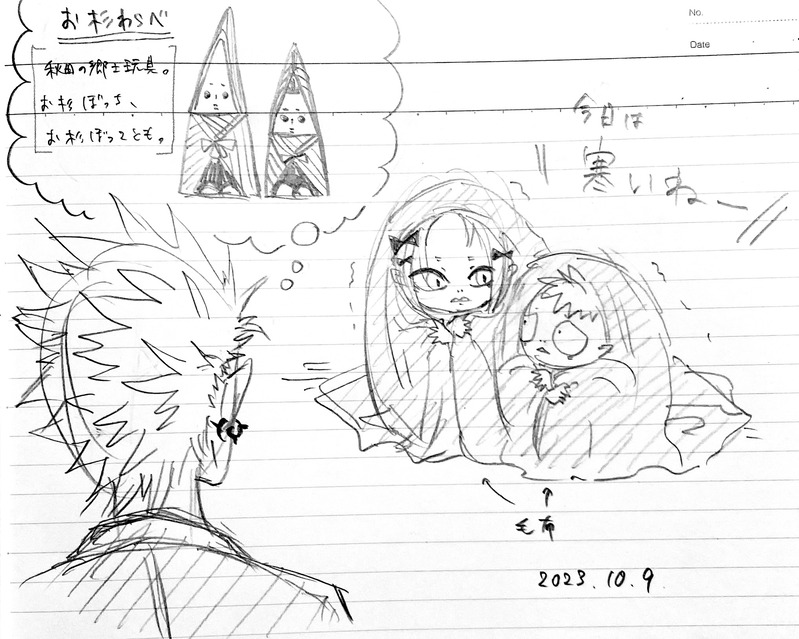 お杉わらべ
秋田の郷土玩具。
お杉ぼっち、
お杉ぼっことも。
No.
Date
今日は
寒いねー
毛布
2023.10.9